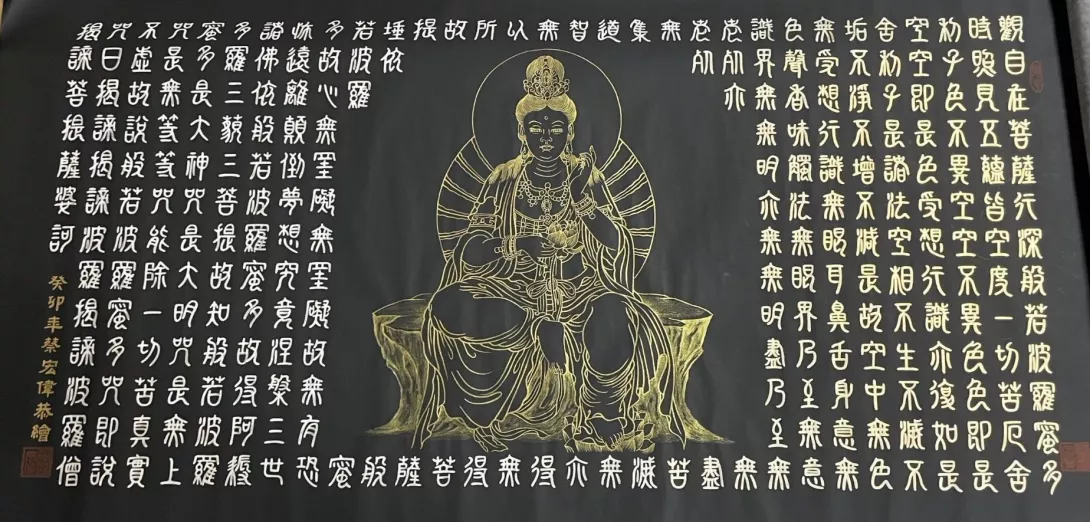 觀自在菩薩行深般若波羅蜜多
時照見五蘊皆空度一切苦厄舍
利子色不異空空不異色色即是
空空即是色受想行識亦復如是
舍利子是諸法空相不生不滅不
垢不淨不增不減是故空中無色
無受想行識無眼耳鼻舌身意無
色聲香味觸法無眼界乃至無意
識界無無明亦無無明盡乃至無
老死亦無
老死盡
無苦
集滅
道無
智亦
無得
以無
所得
故菩
提薩
埵依般
若波羅蜜
多故心無罣礙無罣礙故無有恐
怖遠離顛倒夢想究竟涅槃三世
諸佛依般若波羅蜜多故得阿耨
多羅三藐三菩提故知般若波羅
蜜多是大神咒是大明咒是無上
咒是無等等咒能除一切苦真實
不虛故說般若波羅蜜多咒即說
咒曰揭諦揭諦波羅揭諦波羅僧
揭諦菩提薩婆訶
癸卯年蔡宏偉恭繪